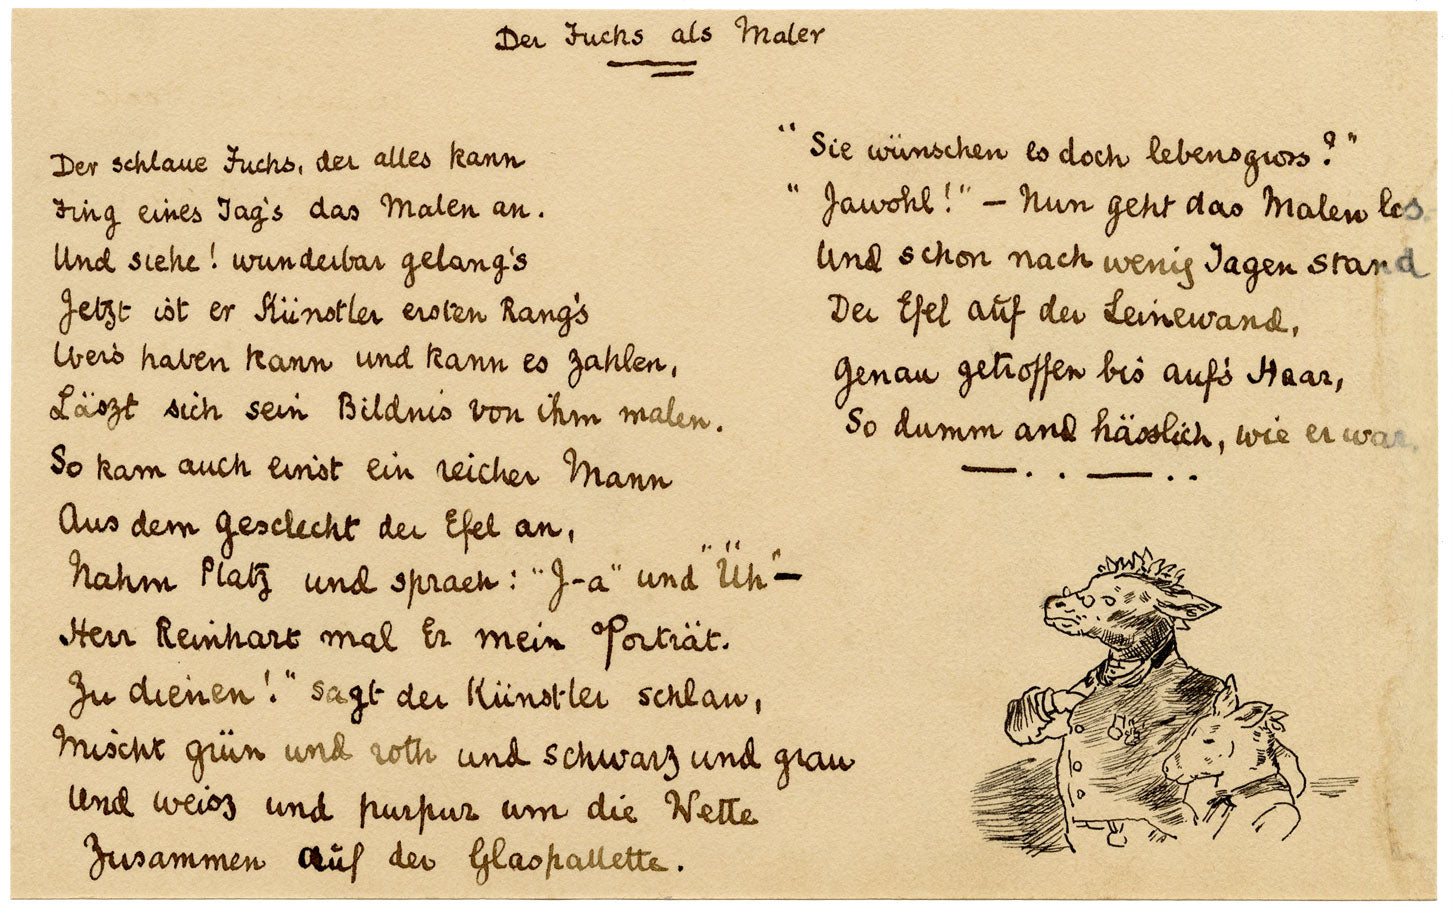 Der Fuchs als Maler
Der schlaue Fuchs, der alles kann
Fing eines Tag's das Malen an.
Und siehe! wunderbar gelang's
Jetzt ist er Künstler ersten Rang's
Wer's haben kann und kann es zahlen,
Läszt sich sein Bildnis von ihm malen.
So kam auch einst ein reicher Mann
Aus dem Geseclecht der Esel an,
Nahm Platz und sprach: "J-a" und "Üh"—
Herr Reinhart mal Er mein Porträt.
Zu dienen!" sagt der Künstler schlau,
Mischt grün und roth und schwarz und grau
Und weisz und purpur um die Wette
Zusammen auf der Glaspallette.
"Sie wünschen es doch lebensgross?"
"Jawohl!" – Nun geht das Malen los.
Und schon nach wenig Tagen stand
Der Esel auf der Leinewand,
Genau getroffen bis auf's Haar,
So dumm and hässlich, wie er war.